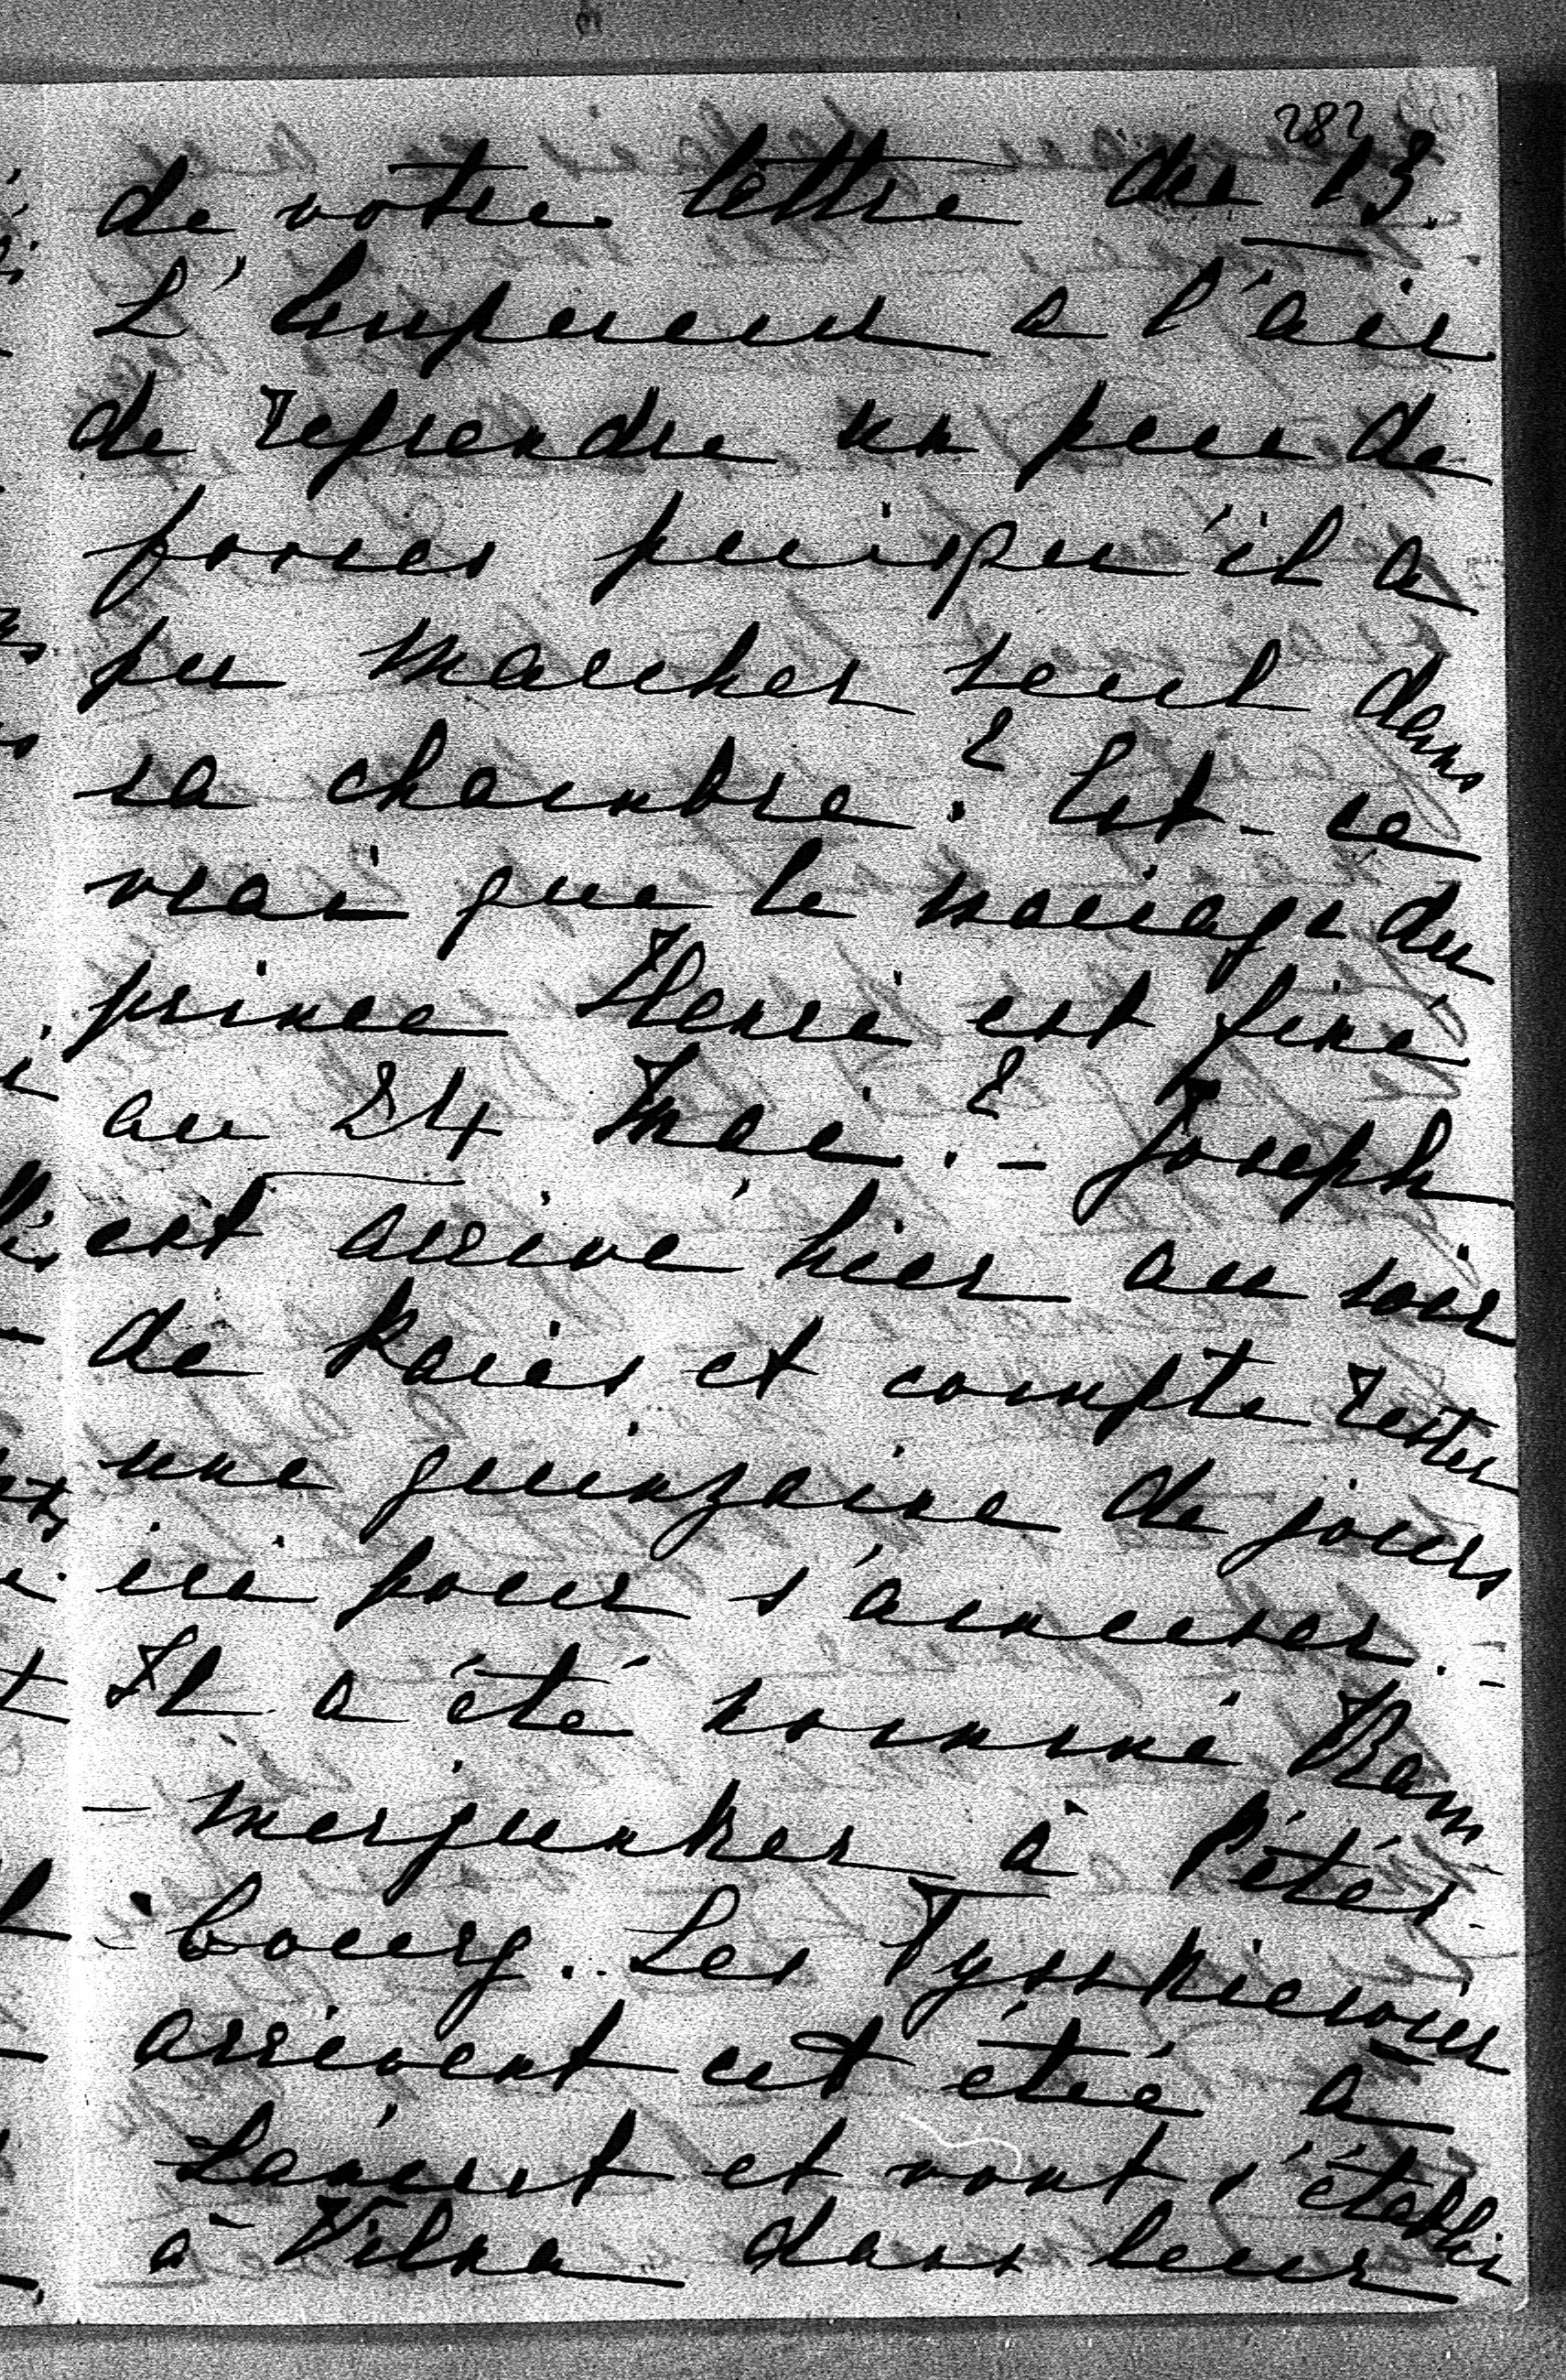 282
de votre lettre du 13.
L'Empereur a l'air
de reprendre un peu de
forces puisqu'il a
pu marcher seul dans
sa chambre? Est-ce
vrai que le mariage du
prince Henri est fixé
au 24 Mai? – Joseph
est arrivé hier au soir
de Paris et compte rester
une quinzaine de jours
ici pour s'amuser. –
Il a été nommé Kam
- merjunker à Péters-
- bourg. Les Tysskiewicz
arrivent cet été à
et vont s'établir
à Vilna dans leur